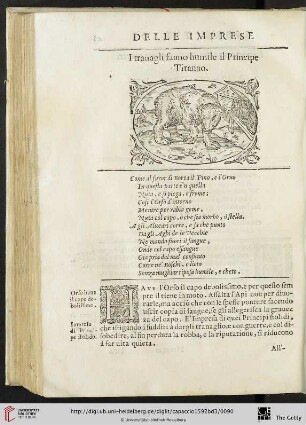 DELLE IMPRESE
I trauagli fanno humile il Principe
Tiranno.
Come al furor di Borea il Pino, e l'Orno
In questa parte e'n quella
Nuta, e si piega, e freme;
Così l'Orso d'intorno
Mentre per rabia geme,
Nuta col capo, o che sia morbo, o stella.
A gli Aluearì corre, e fa che punto
Da gli Aghi de le Pecchie
Ne mandi fuori il sangue,
Onde col capo essangue
Gia priuo del mal consunto
Corre ne' Boschi, e lieto
Sempre
riposa humile, e cheto.
Orso hauere
il capo de-
bolissimo.
Impresa
di Principe
HAVE l'Orso il capo debolissimo, e per questo sem
pre il tiene in moto. Assalta l'Api non per diuo-
rarle, ma acciò che con le spesse punture facendo
uscir copia di sangue, se gli allegerisca la grauez
za del capo. E' Impresa di quei Principi stolidi,
che istigando i sudditi a darli trauaglio con guerre, e col di-
sobedire, alfin perduta la robba, e la riputatione, si riducono
a far vita quieta.
All'-
http://digi.ub.uni-heidelberg.de/diglit/capaccio1592bd3/0090
© Universitätsbibliothek Heidelberg
The Getty